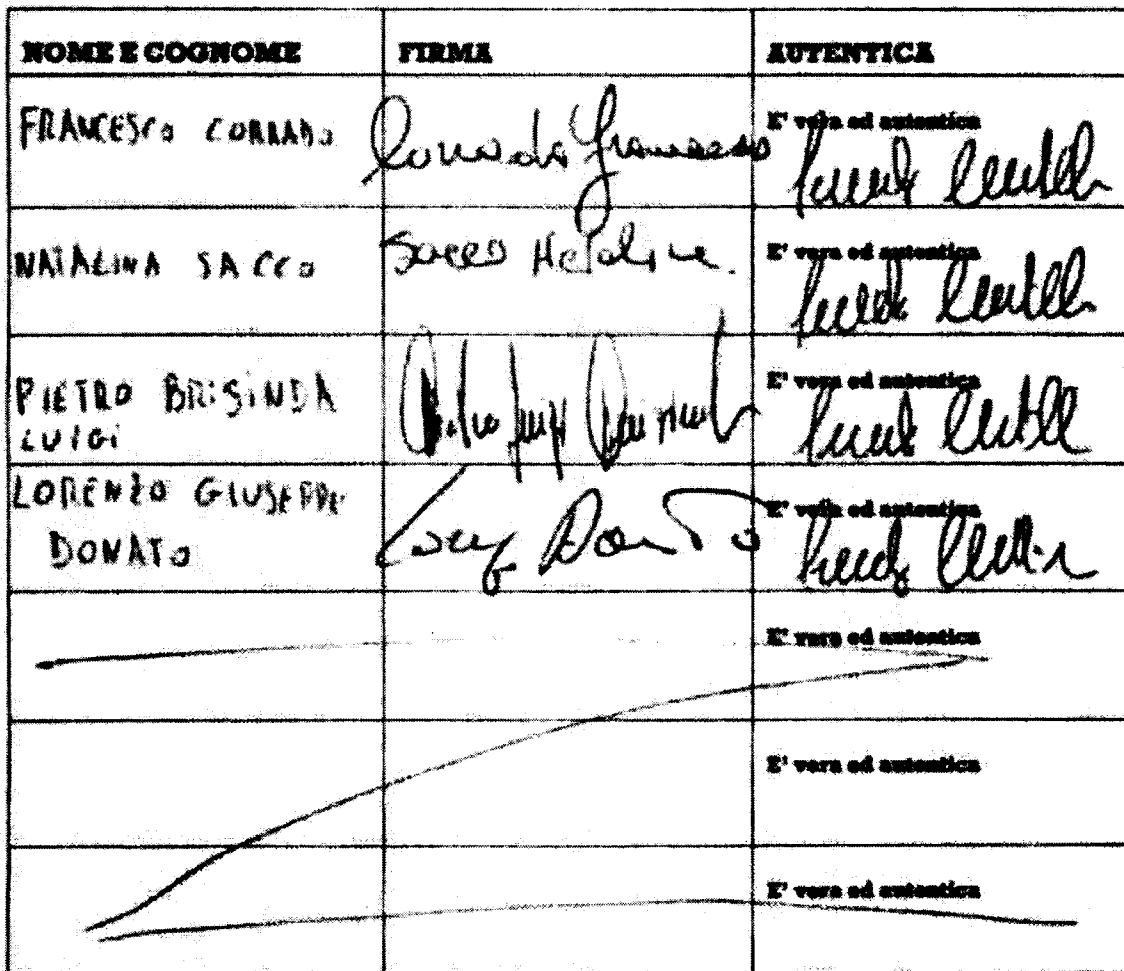 NOME E COGNOME FIRMA AUTENTICA
FRANCESCO CORRADO Corrado Francesco E' vera ed autentica
NATALINA SACCO Sacco Natalina E' vera ed autentica
PIETRO BRISINDA E' vera ed autentica
LUIGI
LORENZO GIUSEPPE E' vera ed autentica
DONATO Donato
E' vera ed autentica
E' vera ed autentica
E' vera ed autentica